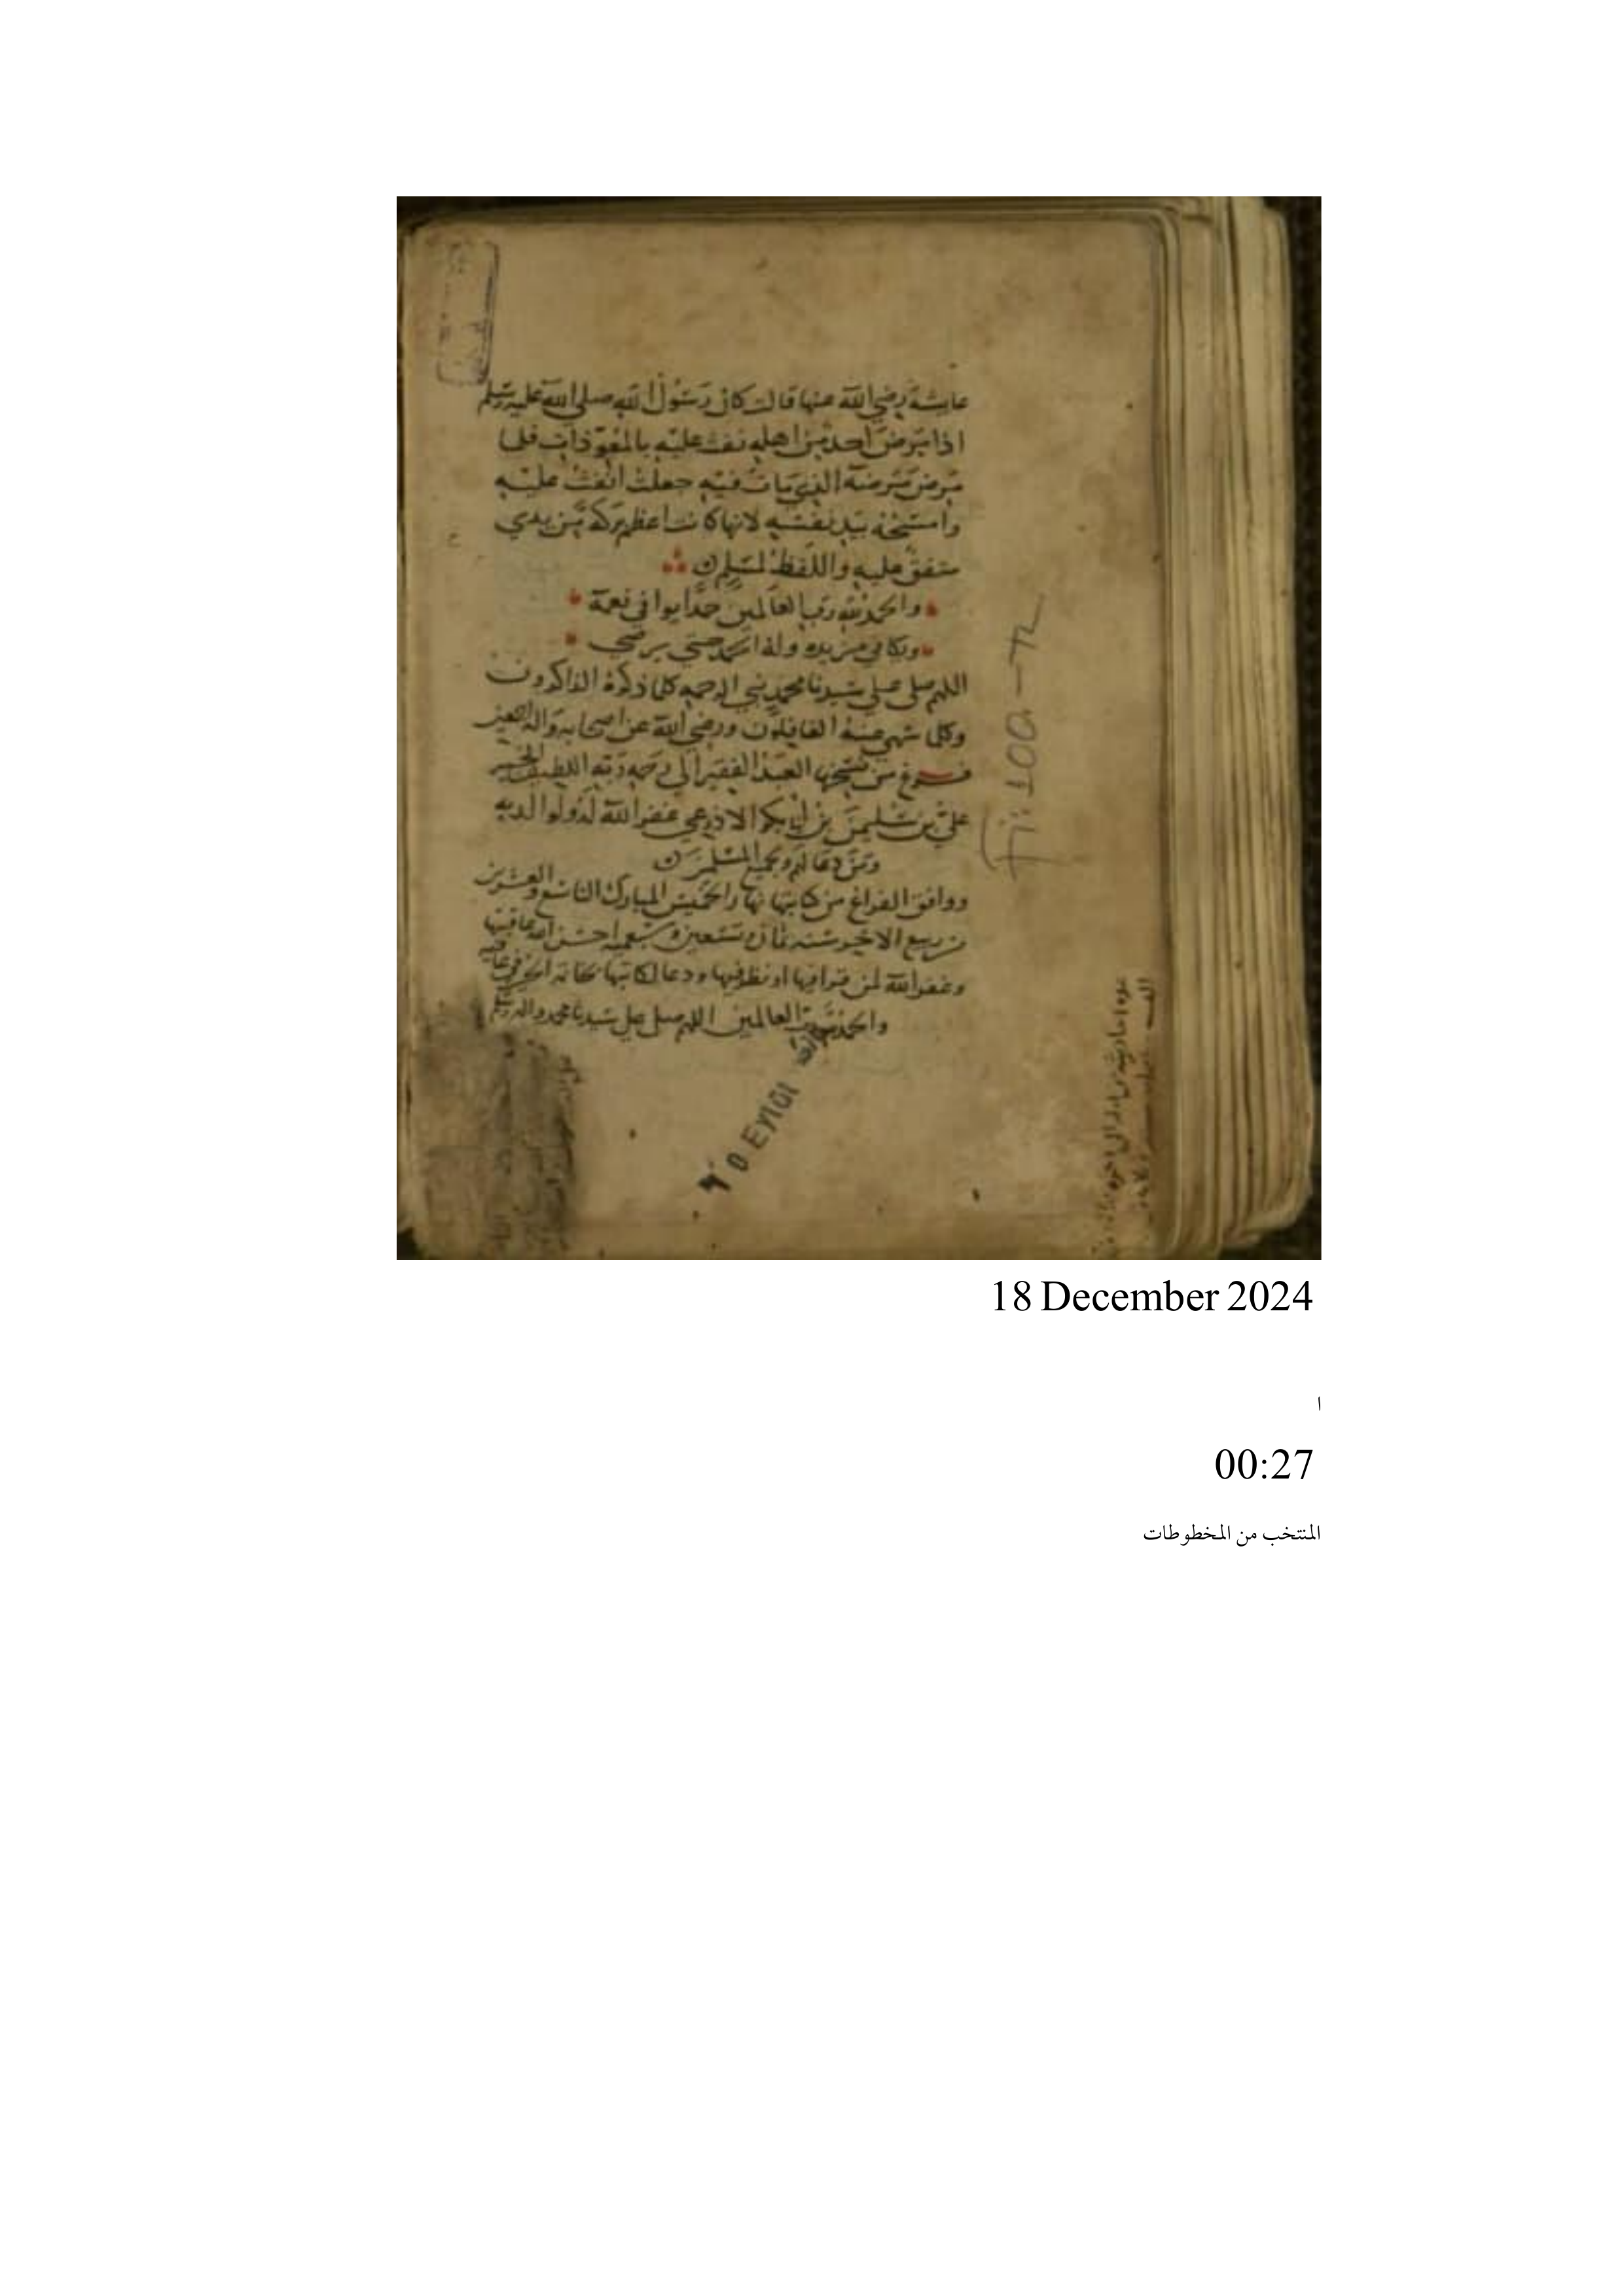 عايشة رضي الله عنها قالت كان رسول الله صلى الله عليه وسلم
اذا مرض احد من اهله نفث عليه بالمعوذات فلما
مرض مرضه الذي مات فيه جعلت انفث عليه
وامسحه بيد نفسه لانها كانت اعظم بركة من يدي
متفق عليه واللفظ لمسلم
والحمد لله رب العالمين حمدا يوافي نعمه
ويكافي مزيده وله الحمد حتى يرضي
اللهم صل على سيدنا محمد نبي الرحمة كلما ذكره الذاكرون
وكلما سهى عنه الغافلون ورضي الله عن اصحابه واله اجمعين
فرغ من نسخها العبد الفقير الى رحمة ربه اللطيف الخبير
علي بن سليمن بن ابي بكر الاذرعي غفر الله له ولوالديه
ومن دعا لهم ولجميع المسلمين
ووافق الفراغ من كتابتها نهار الخميس المبارك التاسع والعشرين
من ربيع الاخر سنة ثمان وتسعين وسبعمية احسن الله عاقبتها
وغفر الله لمن قرا فيها او نظر فيها ودعا لكاتبها
والحمد لله رب العالمين اللهم صل على سيدنا محمد واله وسلم
0 Eylûl
18 December 2024
ا
00:27
المنتخب من المخطوطات